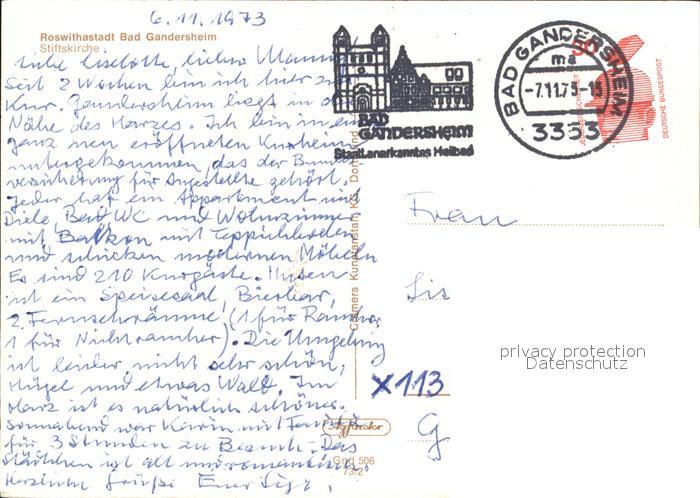 6.11.1973
Roswithastadt Bad Gandersheim
Stiftskirche
Liebe Liselotte, lieber Mann
Seit 2 Wochen bin ich hier zur
Kur. Gandersheim liegt in der
Nähe des Harzes. Ich bin in ein
ganz neu eröffneten Kurheim
untergekommen, das der Bundes
versicherung für Angestellte gehört.
Jeder hat ein Appartement mit
Diele, Bad WC und Wohnzimmer
mit Balkon mit Teppichboden
und schicken modernen Möbeln
Es sind 210 Kurgäste. Unten
ist ein Speisesaal, Bierbar,
2 Fernsehräume (1 für Raucher
1 für Nichtraucher). Die Umgebung
ist leider nicht sehr schön,
Hügel und etwas Wald. Im
Harz ist es natürlich schöner.
Sonnabend war Karin mit Familie
für 3 Stunden zu Besuch. Das
Städtchen ist alt und romantisch.
Herzliche Grüße Eure
BAD
GANDERSHEIM
Staatl. anerkanntes Heilbad
BAD GANDERSHEIM
ma
-7.11.73-13
3353
30
DEUTSCHE BUNDESPOST
Cramers Kunstanstalt KG, Dortmund
Frau
Lis
X113
G
privacy protection
Datenschutz
Agfacolor
Gnd 506
73/2